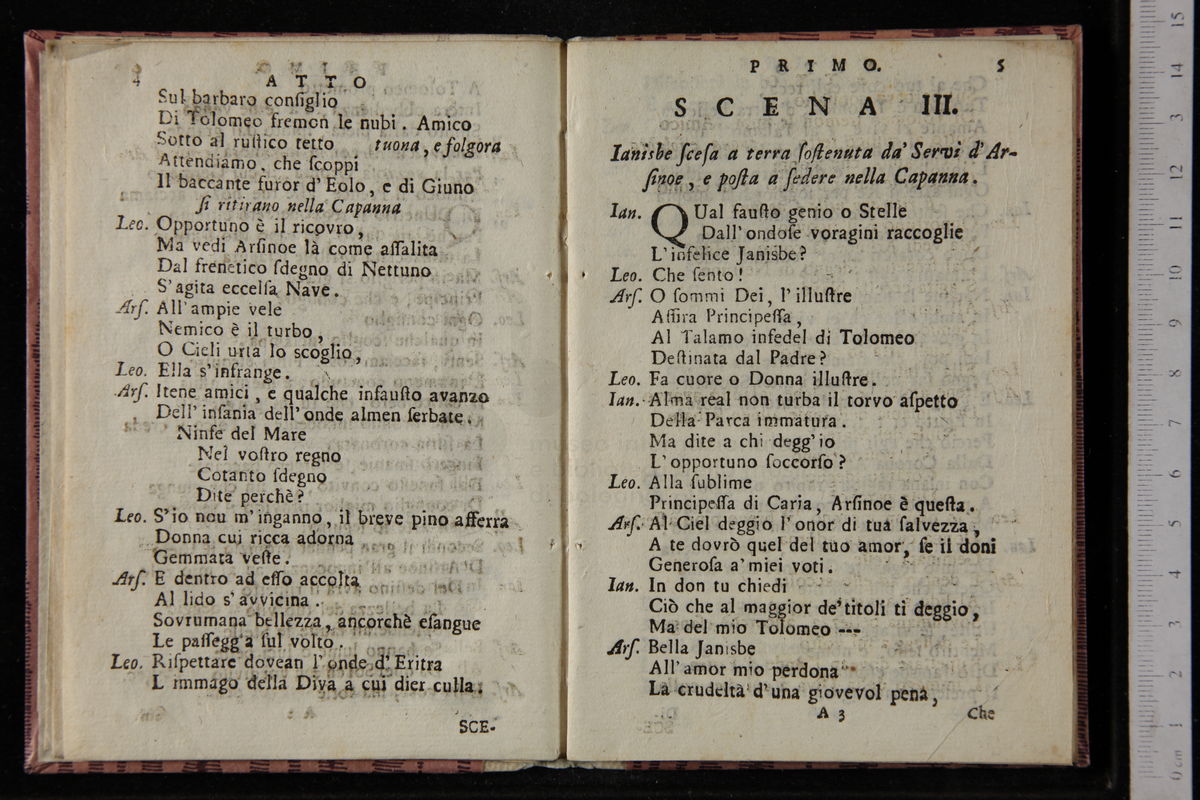 4
ATTO
Sul barbaro conſiglio
Di Tolomeo fremon le nubi. Amico
Sotto al ruſtico tetto tuona, e folgora
Attendiamo, che ſcoppi
Il baccante furor d'Eolo, e di Giuno
ſi ritirano nella Capanna
Leo. Opportuno è il ricovro,
Ma vedi Arſinoe là come aſſalita
Dal frenetico ſdegno di Nettuno
S'agita eccelſa Nave.
Arſ. All'ampie vele
Nemico è il turbo,
O Cieli urta lo scoglio,
Leo. Ella s'infrange.
Arſ. Itene amici, e qualche infauſto avanzo
Dell'inſania dell'onde almen ſerbate.
Ninfe del Mare
Nel voſtro regno
Cotanto ſdegno
Dite perchè?
Leo. S'io nou m'inganno, il breve pino afferra
Donna cui ricca adorna
Gemmata veſte.
Arſ. E dentro ad eſſo accolta
Al lido s'avvicina.
Sovrumana bellezza, ancorchè eſangue
Le paſſegg'a ſul volto.
Leo. Riſpettare dovean l'onde d'Eritra
L immago della Diva a cui dier culla.
SCE-
PRIMO.
5
SCENA III.
Ianisbe ſceſa a terra ſoſtenuta da' Servi d'Ar-
ſinoe, e poſta a ſedere nella Capanna.
Ian. QUal fauſto genio o Stelle
Dall'ondoſe voragini raccoglie
L'infelice Janisbe?
Leo. Che ſento!
Arſ. O ſommi Dei, l'illuſtre
Aſſira Principeſſa,
Al Talamo infedel di Tolomeo
Deſtinata dal Padre?
Leo. Fa cuore o Donna illuſtre.
Ian. Alma real non turba il torvo aſpetto
Della Parca immatura.
Ma dite a chi degg'io
L'opportuno ſoccorſo?
Leo. Alla ſublime
Principeſſa di Caria, Arſinoe è queſta.
Arſ. Al Ciel deggio l'onor di tua ſalvezza,
A te dovrò quel del tuo amor, ſe il doni
Generoſa a'miei voti.
Ian. In don tu chiedi
Ciò che al maggior de'titoli ti deggio,
Ma del mio Tolomeo ---
Arſ. Bella Janisbe
All'amor mio perdona
La crudeltà d'una giovevol pena,
A 3
Che